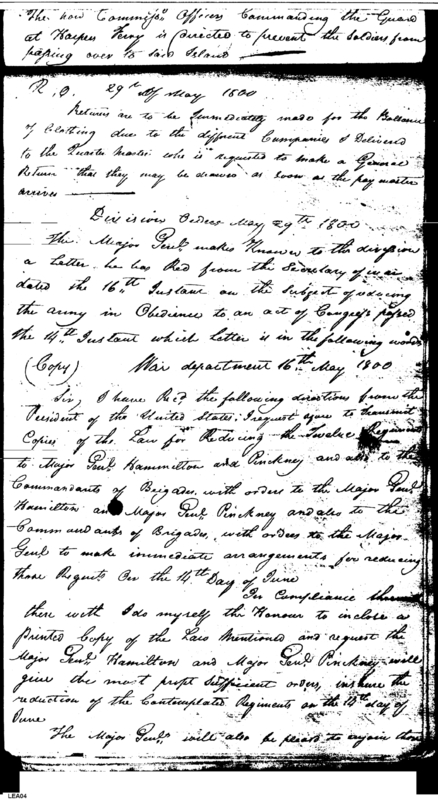 The non Commissn Officer Commanding the Guard
at Harpers Ferry is directed to prevent the Soldiers from
passing over to said Island
R. O. 29th May 1800
Returns are to be Immediately made for the Ballance
of Clothing due to the different Companies & Delivered
to the Quarter Master who is requested to make a General
Return that they may be drawn as soon as the pay master
arrives
Division Orders May 29th 1800
The Major Genl. makes Known to the division
a Letter he has Recd from the Secretary of war
dated the 16th Instant on the Subject of reducing
the army in Obedience to an act of Congress passed
the 14th Instant which Letter is in the following words
(Copy) War department 16th May 1800
Sir, I have Recd the following directions from the
President of the United States. I request you to transmit
Copies of the Law for Reducing the Twelve Regiments
to Major Genl. Hammelton and Pinckney and also to the
Commandants of Brigades, with orders to the Major Genl.
Hamilton and Major Genl. Pinckney and also to the
Commandants of Brigades, with orders to the Major
Genl. to make immediate arrangements for reducing
those Regmts On the 14th Day of June
In Compliance
there with I do myself the Honour to inclose a
printed Copy of the Law Mentioned and request the
Major Genl. Hamilton and Major Genl. Pinckney will
give the most prompt Sufficient orders, insure the
reduction of the Contemplated Regiments on the day of
June
The Major Genls will also be pleased to those
LEA04